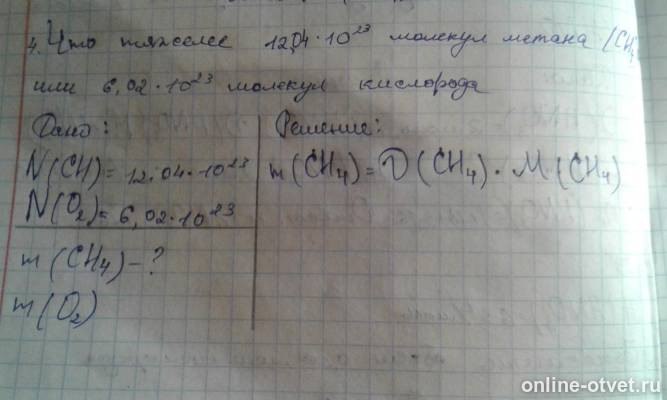 4. Что тяжелее 12,04·10²³ молекул метана (CH₄
или 6,02·10²³ молекул кислорода
Дано:
N(CH)=12,04·10²³
N(O₂)=6,02·10²³
m(CH₄)-?
m(O₂)
Решение:
m(CH₄)=D(CH₄)·M(CH₄)
online-otvet.ru